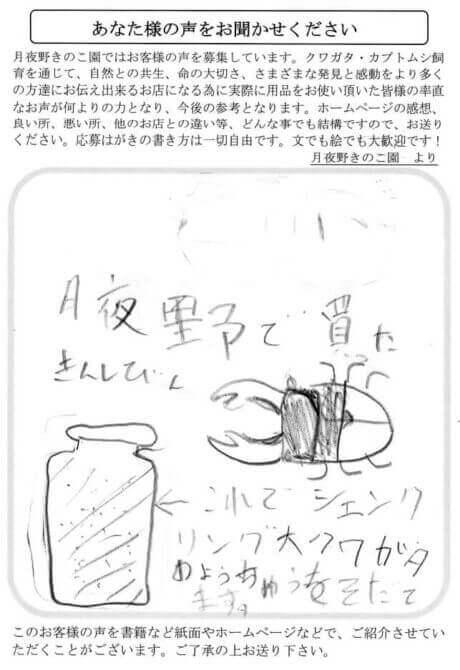 あなた様の声をお聞かせください
月夜野きのこ園ではお客様の声を募集しています。クワガタ・カブトムシ飼
育を通じて、自然との共生、命の大切さ、さまざまな発見と感動をより多く
の方達にお伝え出来るお店になる為に実際に用品をお使い頂いた皆様の率直
なお声が何よりの力となり、今後の参考となります。ホームページの感想、
良い所、悪い所、他のお店との違い等、どんな事でも結構ですので、お送り
ください。応募はがきの書き方は一切自由です。文でも絵でも大歓迎です！
月夜野きのこ園　より
月夜野で買った
きんしびん
←これでシェンク
リング大クワガタ
のようちゅうをそだて
ます。
このお客様の声を書籍など紙面やホームページなどで、ご紹介させてい
ただくことがございます。ご了承の上お送り下さい。